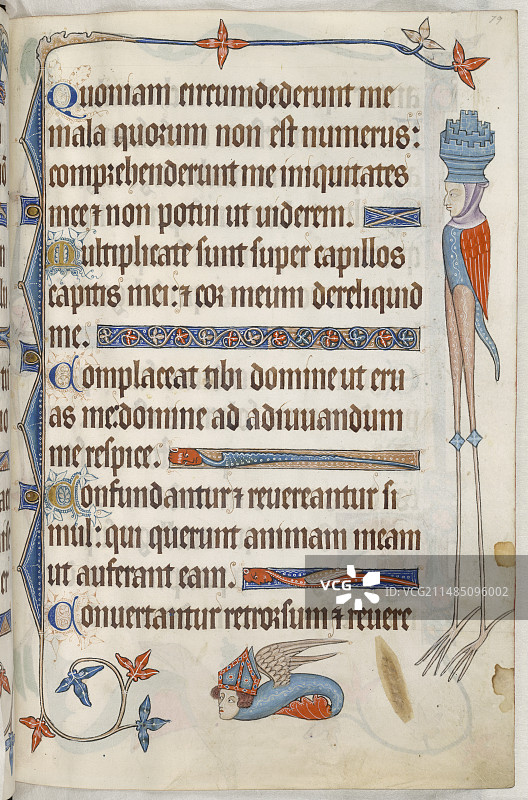 79
Quoniam circumdederunt me
mala quorum non est numerus:
comprehenderunt me iniquitates
mee ⁊ non potui ut uiderem.
Multiplicate sunt super capillos
capitis mei: ⁊ cor meum dereliquid
me.
Complaceat tibi domine ut eru
as me: domine ad adiuuandum
me respice.
Confundantur ⁊ reuereantur si
mul: qui querunt animam meam
ut auferant eam.
Conuertantur retrorsum ⁊ reuere
VCG
ID: VCG211485096002